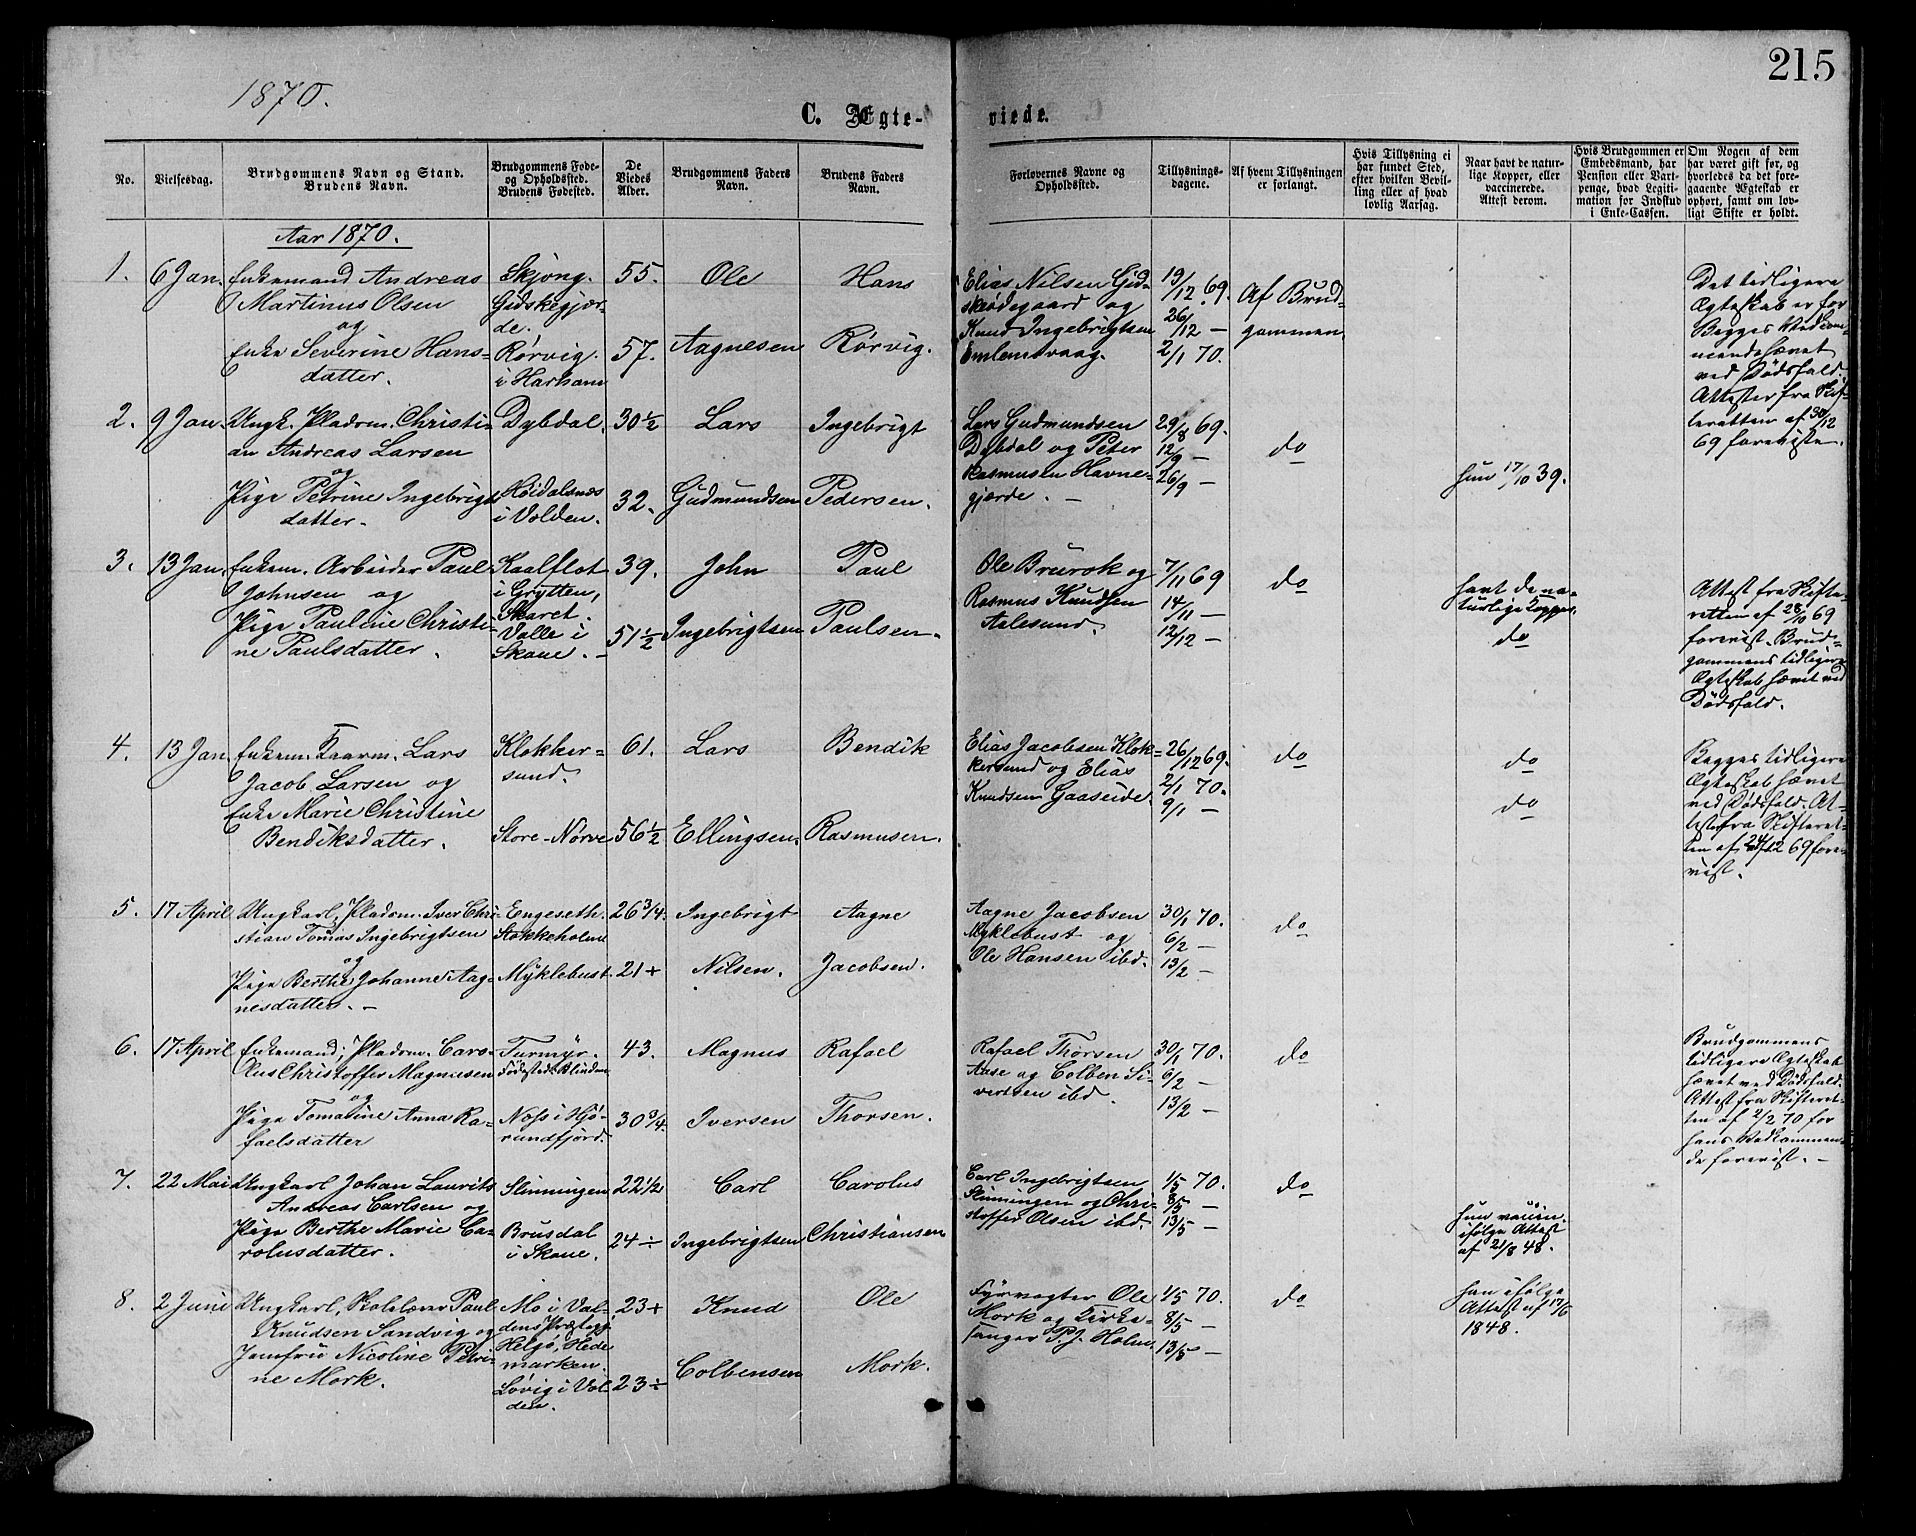 215
1870.
C. Ægte-
viede.
No.
Vielsesdag.
Brudgommens Navn og Stand.
Brudens Navn.
Brudgommens Føde-
og Opholdssted.
Brudens Fødested.
De
Viedes
Alder.
Brudgommens Faders
Navn.
Brudens Faders
Navn.
Forlovernes Navne og
Opholdssted.
Tillysnings-
dagene.
Af hvem Tillysningen
er forlangt.
Hvis Tillysning ei
har fundet Sted,
efter hvilken Bevil-
ling eller af hvad
lovlig Aarsag.
Naar havt de natur-
lige Kopper, eller
vaccinerede.
Attest derom.
Hvis Brudgommen er
Embedsmand, har
Pension eller Vart-
penge, hvad Legiti-
mation for Indskud
i Enke-Cassen.
Om Nogen af dem
har været gift før, og
hvorledes da det fore-
gaaende Ægteskab er
ophørt, samt om lov-
ligt Skifte er holdt.
Aar 1870.
1.
6 Jan.
Enkemand Andreas
Martinus Olsen
og
Enke Severine Hans-
datter.
Skjong.
Gidskegjær-
de.
Rørvig.
i Harham
55.
57.
Ole
Aagnesen
Hans
Rørvig.
Elias Nilsen Gid-
skødegaard og
Knud Ingebrigtsen
Emlemsvaag.
19/12 69.
26/12 —
2/1 70.
Af Brud-
gommen
Det tidligere
Ægteskab er for
Begges Vedkom-
mende hævet
ved Dødsfald.
Attester fra Skif-
teretten af 30/12
69 foreviste.
2.
9 Jan.
Ungk. Pladsm. Christi-
an Andreas Larsen
og
Pige Petrine Ingebrigts
datter.
Dybdal.
Høidalsnæs
i Volden.
30½
32.
Lars
Gudmundsen
Ingebrigt
Pedersen.
Lars Gudmundsen
Dybdal og Peter
Rasmusen Havne-
gjærde. —
29/8 69.
12/9 —
26/9 —
do
hun 17/10 39.
3.
13 Jan.
Enkem. Arbeider Paul
Johnsen og
Pige Pauline Christi-
ne Paulsdatter.
Kaalflot
i Grytten,
Skaret.
Valle i
Skoue. —
39.
51½
John
Ingebrigtsen
Paul
Paulsen
Ole Brurok og
Rasmus Knudsen
Aalesund.
7/11 69
14/11 —
12/12 —
do
havt de na-
turlige Kopper.
do
Attest fra Skifte-
retten af 28/10 69
forevist. Brud-
gommens tidligere
Ægteskab hævet ved
Dødsfald.
4.
13 Jan.
Enkem. Kaarm. Lars
Jacob Larsen og
Enke Marie Christine
Bendiksdatter.
Klokker-
sund.
Store-Nørve
61.
56½
Lars
Ellingsen.
Bendik
Rasmusen.
Elias Jacobsen Klok-
kersund og Elias
Knudsen Gaaseide.
26/12 69.
2/1 70.
9/1 —
do
do
do
Begges tidligere
Ægteskab hævet
ved Dødsfald. At-
test fra Skifteret-
ten af 24/12 69 fore-
vist.
5.
17 April
Ungkarl, Pladsm. Iver Chri-
stian Tomas Ingebrigtsen
og
Pige Berthe Johanne Aag-
nesdatter. —
Engeseth.
Stokkeholm
Myklebust.
26 3/4.
21+
Ingebrigt
Nilsen.
Aagne
Jacobsen.
Aagne Jacobsen
Myklebust og
Ole Hansen ibd.
30/1 70.
6/2 —
13/2 —
do
6.
17 April
Enkemand, Pladsm. Cars-
Olus Christoffer Magnusen
og
Pige Tomaline Anna Ra-
faelsdatter
Turmyr.
Fødested: Blindem
Noss i Hjø-
rundfjord.
43.
30 3/4.
Magnus
Iversen
Rafael
Thorsen.
Rafael Thorsen
Aase og Colben Si-
vertsen ibd.
30/1 70.
6/2 —
13/2 —
do
Brudgommens
tidligere Ægteskab
hævet ved Dødsfald.
Attest fra Skifteret-
ten af 2/2 70 for
hans Vedkommen-
de forevist. —
7.
22 Mai
Ungkarl Johan Laurits
Andreas Carlsen og
Pige Berthe Marie Ca-
rolusdatter.
Slinningen
Brusdal
i Skoue.
22½
24 ÷
Carl
Ingebrigtsen
Carolus
Christiansen
Carl Ingebrigtsen
Slinningen og Chri-
stoffer Olsen ibd.
1/5 70.
8/5 —
13/5 —
do
hun vaccin.
ifølge Attest
af 21/8 48.
8.
2 Juni
Ungkarl, Skolelærer Paul
Knudsen Sandvig og
Jomfru Nicoline Petri-
ne Mork.
Mo i Val-
dens Prægj.
Helgø, Hede
marken.
Løvig i Vol-
den.
23+
23 ÷
Knud
Colbensen
Ole
Mork.
Fyrvogter Ole
Mork og Kirke-
sanger P. J. Holm.
1/5 70.
8/5 —
13/5 —
do
han ifølge
Attest af 17/6
1848.